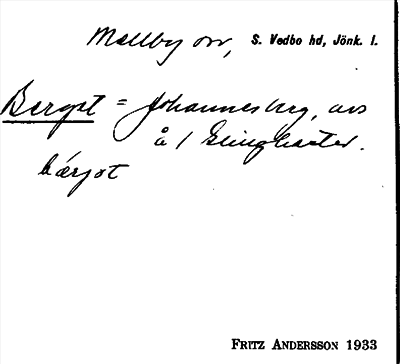 Mellby sn, S. Vedbo hd, Jönk. l.
Berget = Johannesberg, avs
å 1
bärjət
FRITZ ANDERSSON 1933